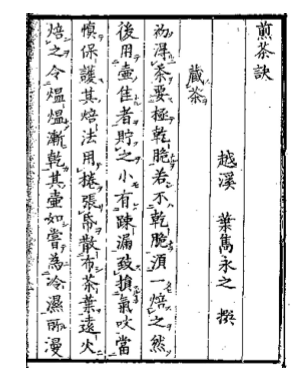 煎茶訣
越溪 葉雋永之 撰
藏茶
初得茶要極乾脆若不乾脆須一焙之然
後用壷佳者貯之小有踈漏致損氣味當
慎保護其焙法用捲張帋散布茶葉遠火
焙之令熅熅漸乾其壷如嘗為冷濕所漫